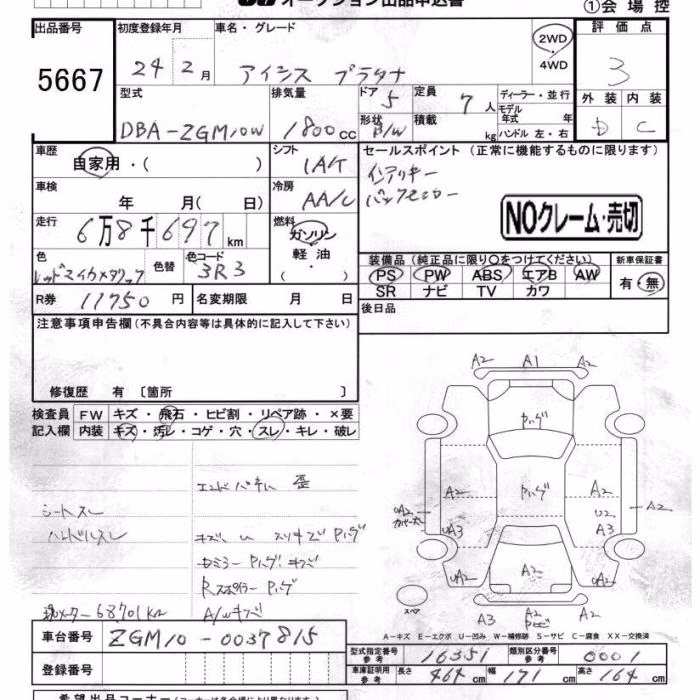 オークション出品申込書 ①会場控
出品番号 初度登録年月 車名・グレード 評価点
5667 24年2月 アイシス プラタナ 2WD・4WD 3
型式 排気量 ドア 5 定員 7人 ディーラー・並行 外装 内装
DBA-ZGM10W 1800cc 形状 B/W 積載 kg モデル年式 年式 ハンドル 左・右 D C
車歴 自家用・( ) シフト IAT セールスポイント (正常に機能するものに限ります)
車検 年 月( 日) 冷房 AA/C インテリキー
走行 6万8千697km 燃料 ガソリン・軽油・( ) NOクレーム・売切
色 レッドマイカメタリック 色替 色コード 3R3 装備品 (純正品に限り○をつけてください) 新車保証書
PS PW ABS エアB AW 有・無
SR ナビ TV カワ
R券 11750円 名変期限 月 日 後日品
注意事項申告欄 (不具合内容等は具体的に記入して下さい)
修復歴 有 〔箇所 〕
検査員 FW キズ・飛石・ヒビ割・リペア跡・×要
記入欄 内装 キズ・汚レ・コゲ・穴・スレ・キレ・破レ
エンドパネル 歪
シートスレ
ハンドルスレ キズ U スリキズ Pハゲ
Pハゲ キズ
Rスポイラー Pハゲ
現メーター68701km A/Wキズ
A2 A1 A2
Pハゲ
A2 Pハゲ A2
A2 U2 A2
UA3 A3
A2 A2 A2
スペア
A3 A2 A2
A-キズ E-エクボ U-凹み W-補修跡 S-サビ C-腐食 XX-交換済
車台番号 ZGM10-0037815
型式指定番号 参考 16351 類別区分番号 参考 0001
登録番号 車庫証明用 参考 長さ 464cm 幅 171cm 高さ 164cm
希望出品コーナー